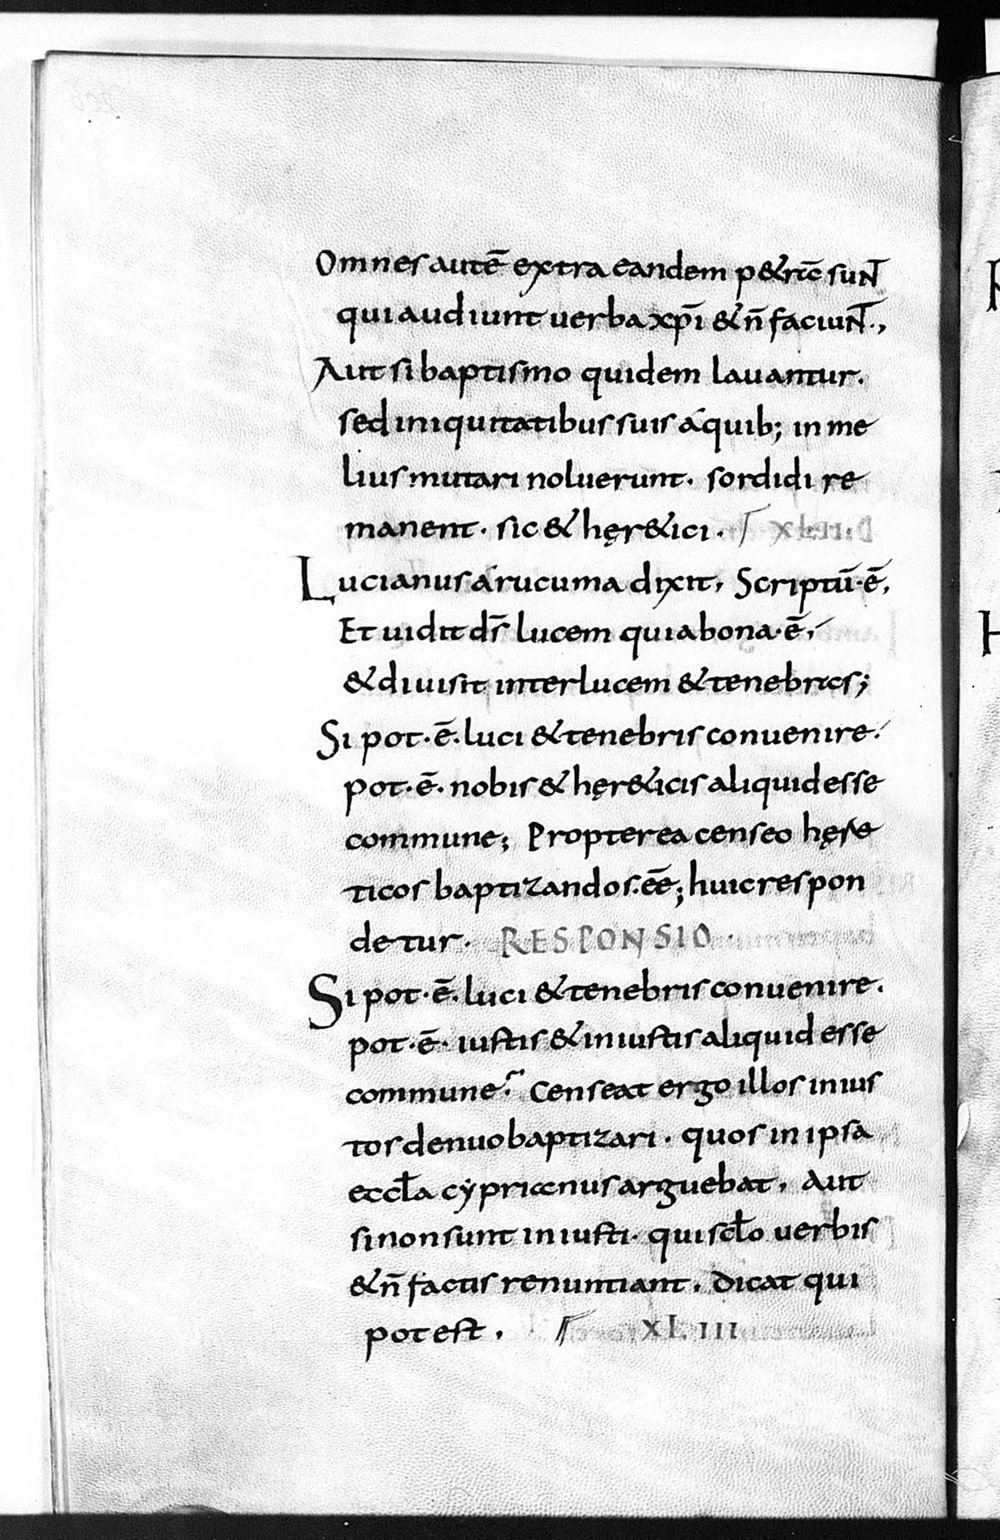 Omnes autē extra eandem p&rā sunt
qui audiunt uerba xp̄i & n̄ faciunt.,
Aut si baptismo quidem lauantur.
sed iniquitatibus suis a quib; in me
lius mutari noluerunt. sordidi re
manent. sic & hęr&ici.
Lucianus a rucuma dixit, Scriptū·ē,
Et uidit d̄s lucem quia bona·ē,
& diuisit inter lucem & tenebras;
Si pot·ē. luci & tenebris conuenire.
pot·ē. nobis & hęr&icis aliquid esse
commune; Propterea censeo hęre
ticos baptizandos.ēē; huic respon
detur. RESPONSIO.
Si pot·ē. luci & tenebris conuenire.
pot·ē. iustis & iniustis aliquid esse
commune? Censeat ergo illos inius
tos denuo baptizari. quos in ipsa
eccła cẏprianus arguebat, Aut
si non sunt iniusti. qui scło uerbis
& n̄ factis renuntiant. Dicat qui
potest. XLIII